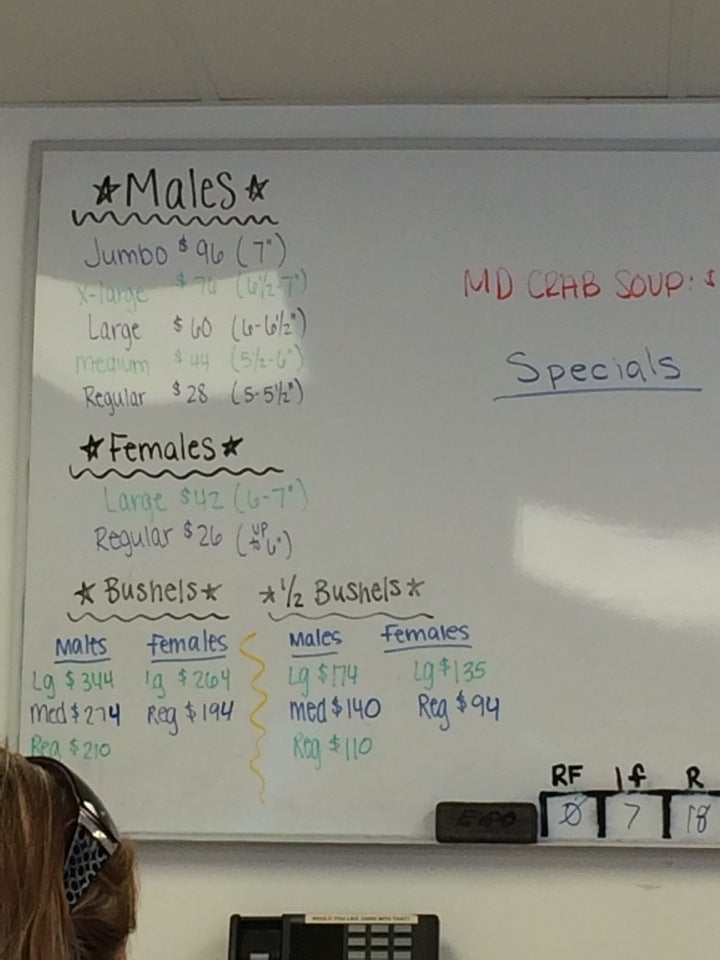 ☆Males☆
Jumbo $96 (7")
X-large $76 (6½-7")
Large $60 (6-6½")
medium $44 (5½-6")
Regular $28 (5-5½")
☆Females☆
Large $42 (6-7")
Regular $26 (UP to 6")
☆Bushels☆
Males Females
Lg $344 lg $264
med $274 Reg $194
Reg $210
☆½ Bushels☆
Males Females
Lg $174 Lg $135
med $140 Reg $94
Reg $110
MD CRAB SOUP: $
Specials
RF lf R
0 7 18
EXPO
WOULD YOU LIKE CORN WITH THAT?